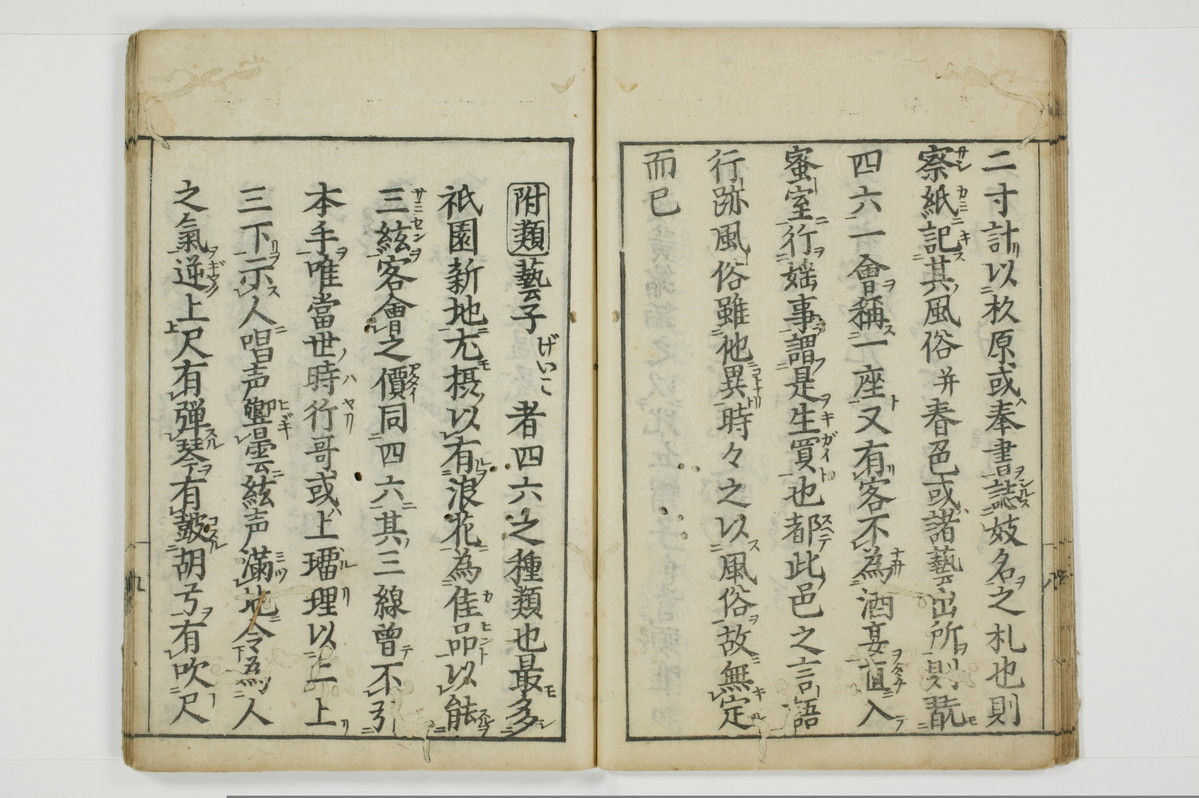 二寸計以杉原或奉書誌妓名之札也則
察紙記其風俗并春色或諸藝出所則翫
四六一會稱一座又有客不為酒宴直入
蜜室行婬事謂是生買也都此邑之言語
行跡風俗雖他異時々之以風俗故無定
而已
附類藝子げいこ者四六之種類也最多
祇園新地尤摂以有浪花為佳品以能
三絃客會之價同四六其三線曽不引
本手唯當世時行哥或上瑠理以二上
三下示人唱声響曇絃声満地令為人
之氣逆上尺有弾琴有皷胡弓有吹尺
九